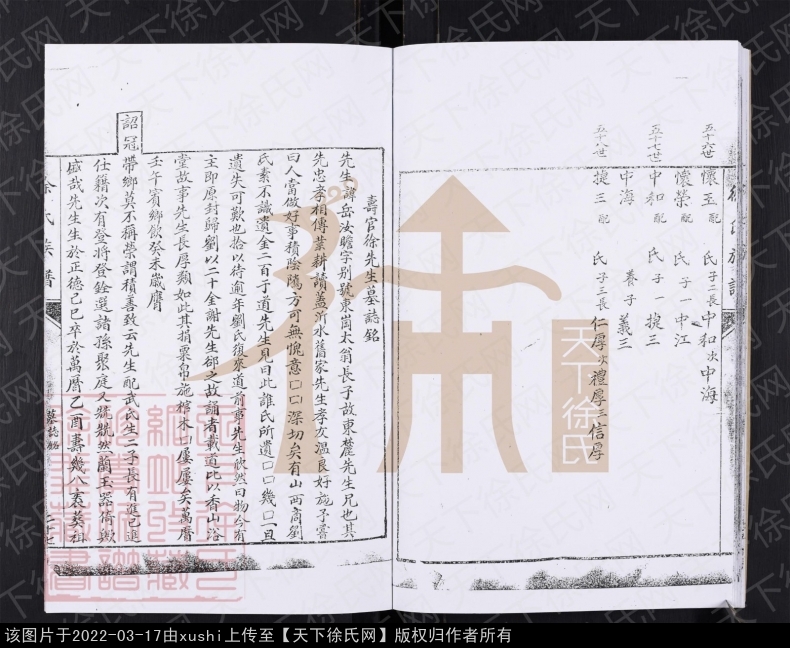 五十六世
懷玉配 氏子二長中和次中海
懷榮配 氏子一中江
五十七世
中和配 氏子一捷三
中海 養子義三
五十八世
捷三配 氏子三長仁厚次禮厚三信厚
壽官徐先生墓誌銘
先生諱岳汝瞻字别號東崗太翁長子故東麓先生兄也其
先忠孝相傳業耕讀蓋沂水舊家先生孝友溫良好施予嘗
曰人當做好事積陰隲方可無愧意口口深切矣有山西商劉
氏素不識遺金二百于道先生見曰此誰氏所遺口口幾口一旦
遺失可歎也拾以待逾年劉氏復來道前事先生欣然曰物今有
主即原封歸劉以二十金謝先生郤之故誦者載道比以香山浴
堂故事先生長厚類如此其捐粟帛施棺木口屢屢矣萬曆
壬午賓鄉飲癸未歲膺
詔冠
帶鄉莫不稱榮謂積善致云先生配武氏生二子長有進已進
仕籍次有登將登銓選諸孫聚庭又兢兢然蘭玉器倚歟
盛哉先生生於正德己巳卒於萬曆乙酉壽幾八袠葬祖
徐氏族譜
墓誌銘
二十七
天下徐氏
天下徐氏网
该图片于2022-03-17由xushi上传至【天下徐氏网】版权归作者所有